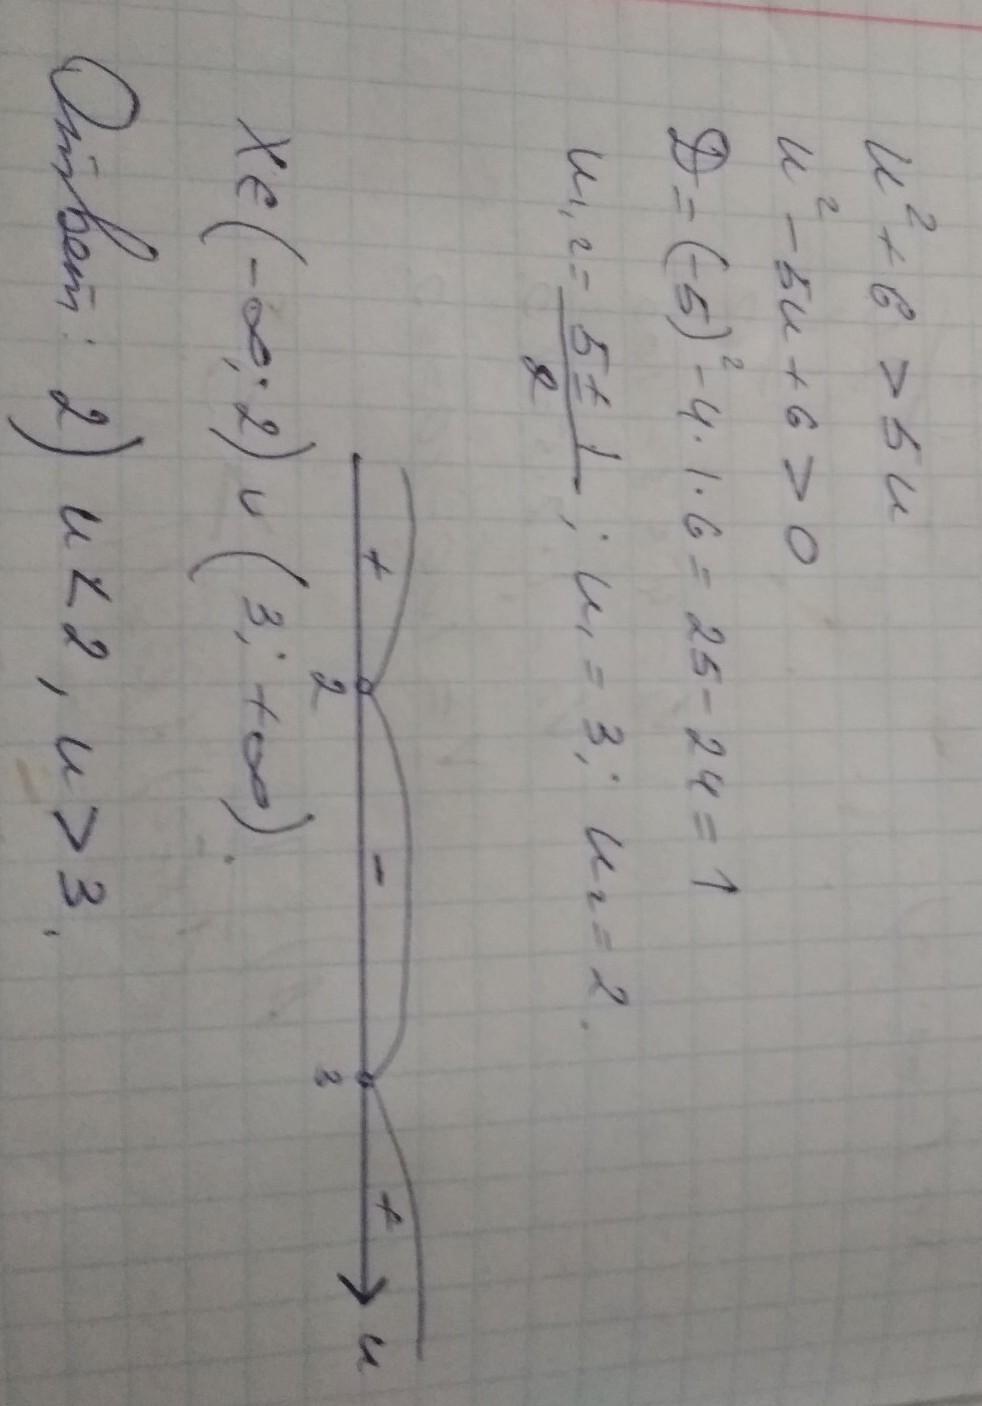 u² + 6 > 5u
u² - 5u + 6 > 0
D = (-5)² - 4·1·6 = 25 - 24 = 1
u₁,₂ = (5 ± 1)/2 ; u₁ = 3; u₂ = 2.
+ - + 
2 3 u
X ∈ (-∞; 2) ∪ (3; +∞).
Ответ: 2) u < 2, u > 3.